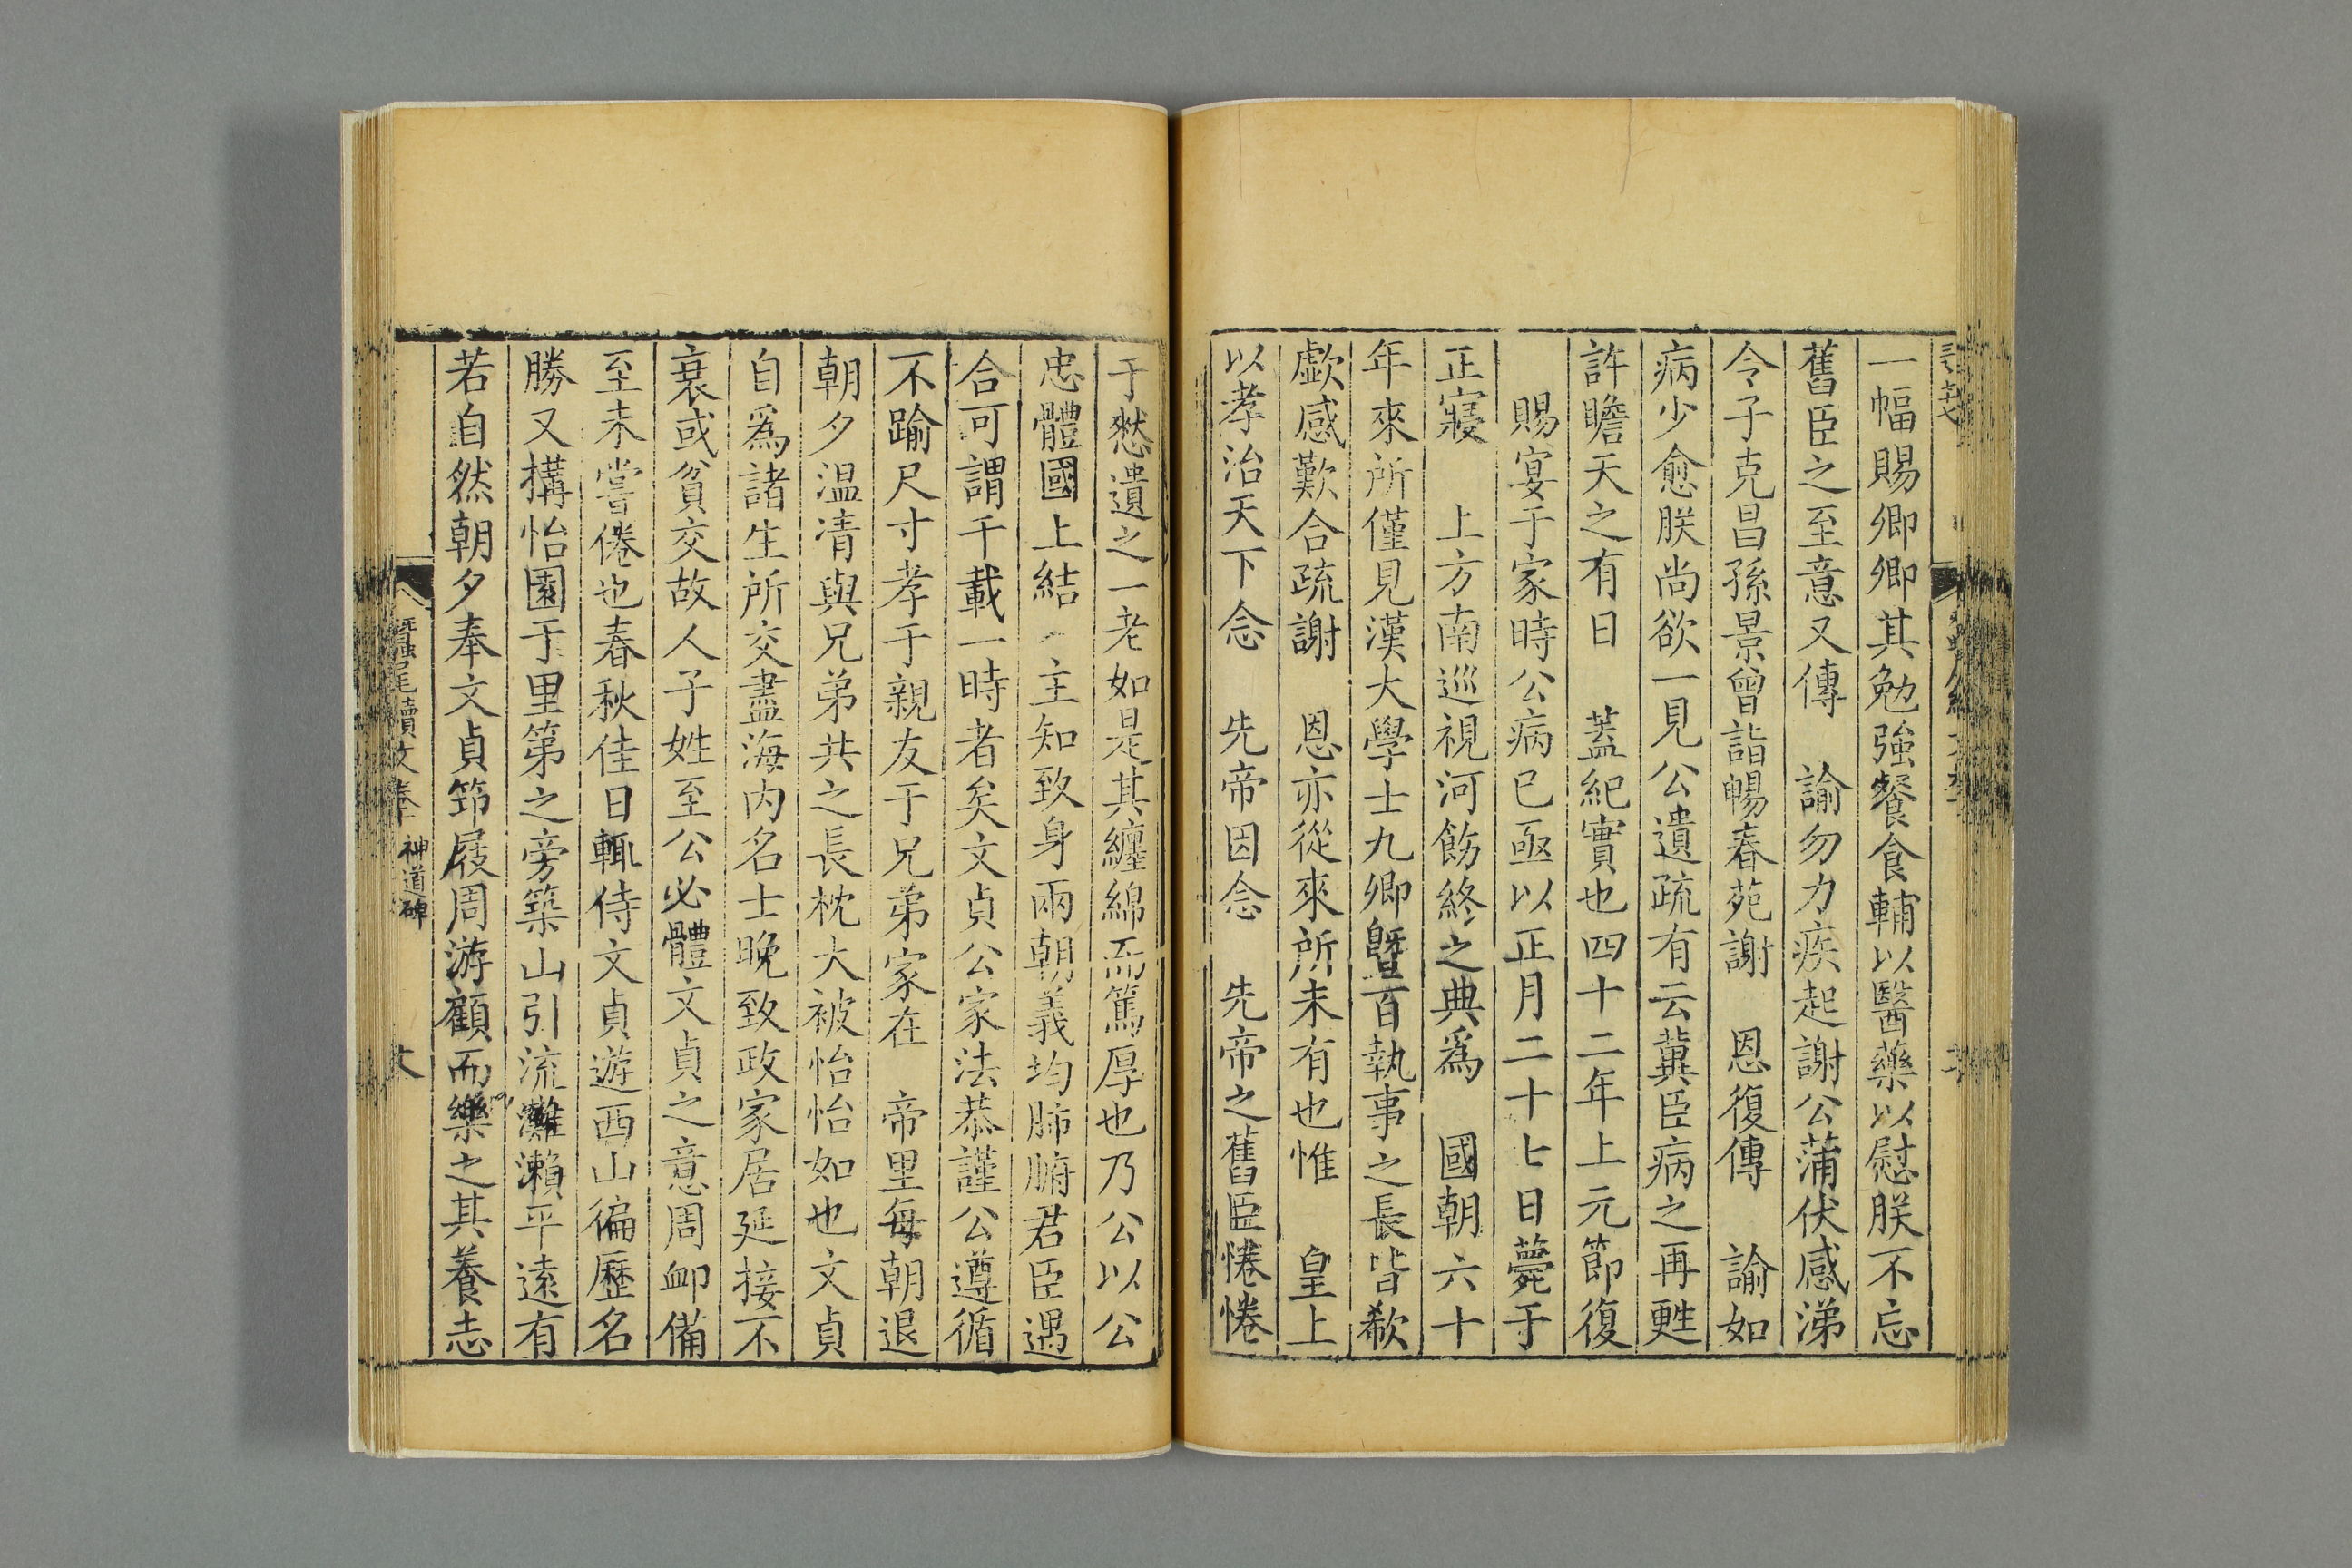 一幅賜卿卿其勉強餐食輔以醫藥以慰朕不忘
舊臣之至意又傳　諭勿力疾起謝公蒲伏感涕
令子克昌孫景曾詣暢春苑謝　恩復傳　諭如
病少愈朕尚欲一見公遺疏有云冀臣病之再甦
許瞻天之有日　蓋紀實也四十二年上元節復
賜宴于家時公病已亟以正月二十七日薨于
正寢　上方南巡視河飭終之典爲　國朝六十
年來所僅見漢大學士九卿曁百執事之長皆欷
歔感歎合疏謝　恩亦從來所未有也惟　皇上
以孝治天下念　先帝因念　先帝之舊臣惓惓
于憖遺之一老如是其纏綿而篤厚也乃公以公
忠體國上結　主知致身兩朝義均肺腑君臣遇
合可謂千載一時者矣文貞公家法恭謹公遵循
不踰尺寸孝于親友于兄弟家在　帝里每朝退
朝夕温凊與兄弟共之長枕大被怡怡如也文貞
自爲諸生所交盡海内名士晚致政家居延接不
衰或貧交故人子姓至公必體文貞之意周卹備
至未嘗倦也春秋佳日輒侍文貞遊西山徧歷名
勝又搆怡園于里第之旁築山引流灘瀨平遠有
若自然朝夕奉文貞筇屐周游顧而樂之其養志
蠶尾續文卷　神道碑